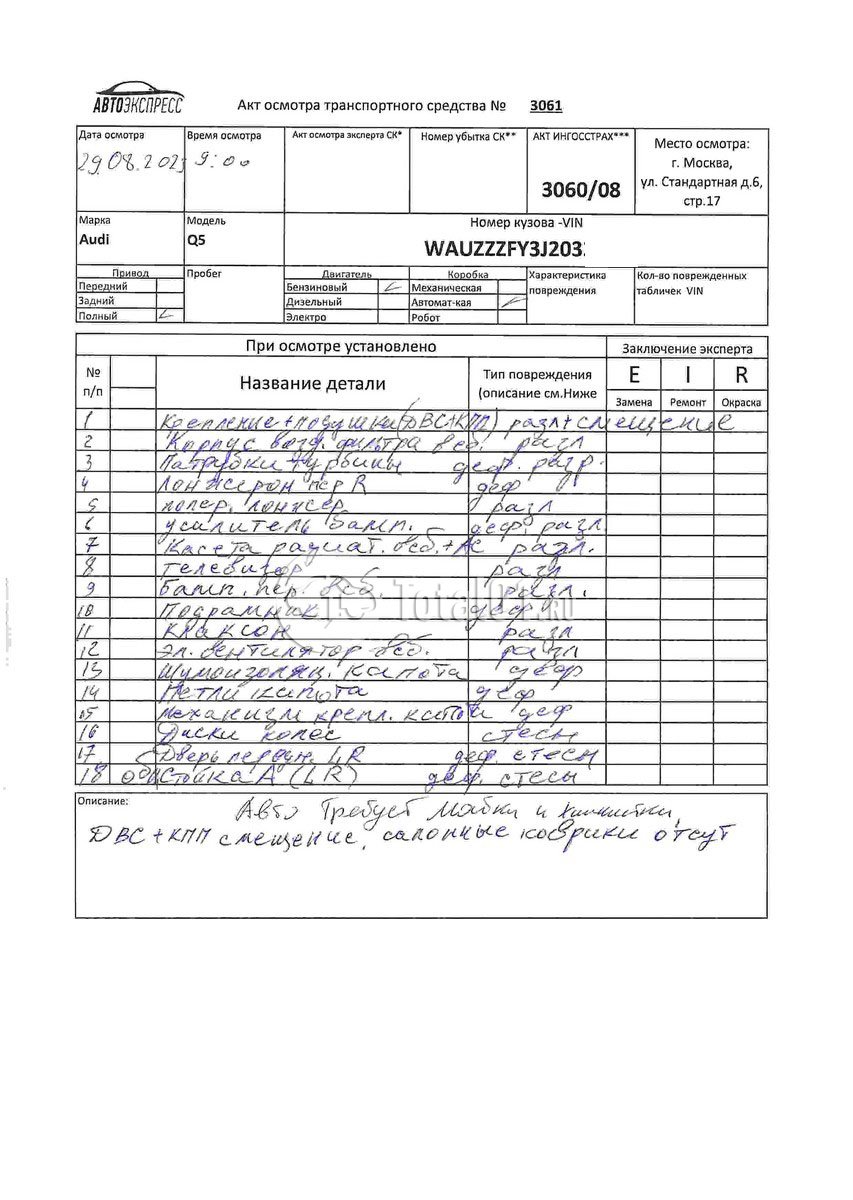 АВТОЭКСПРЕСС
Акт осмотра транспортного средства № 3061
Дата осмотра Время осмотра Акт осмотра эксперта СК* Номер убытка СК** АКТ ИНГОССТРАХ*** Место осмотра:
29.08.2025 9:00 3060/08 г. Москва,
ул. Стандартная д.6,
стр.17
Марка Модель Номер кузова -VIN
Audi Q5 WAUZZZFY3J203
Привод Пробег Двигатель Коробка Характеристика Кол-во поврежденных
Передний Бензиновый Механическая повреждения табличек VIN
Задний Дизельный Автомат-кая
Полный Электро Робот
При осмотре установлено Заключение эксперта
№ п/п Название детали Тип повреждения (описание см.Ниже E I R
Замена Ремонт Окраска
1 Крепление+подушки (ДВС+КПП) разл+смещение
2 Корпус возд. фильтра в сб. разл
3 Патрубки турбины деф. разр.
4 Лонжерон пер R деф
5 попер. лонжер. разл
6 усилитель бамп. деф. разл.
7 Касета радиат. в сб.+АС разл.
8 телевизор разл
9 бамп. пер. в сб. разл.
10 Подрамник деф
11 Клаксон разл
12 эл. вентилятор в сб. разл
13 Шумоизоляц. капота деф
14 Петли капота деф
15 механизм крепл. капота деф
16 Диски колес стесы
17 Дверь передн. LR деф. стесы
18 Стойка А (LR) деф. стесы
TotalO1.RU
Описание: Авто Требует мойки и химчистки,
ДВС+КПП смещение, салонные коврики отсут